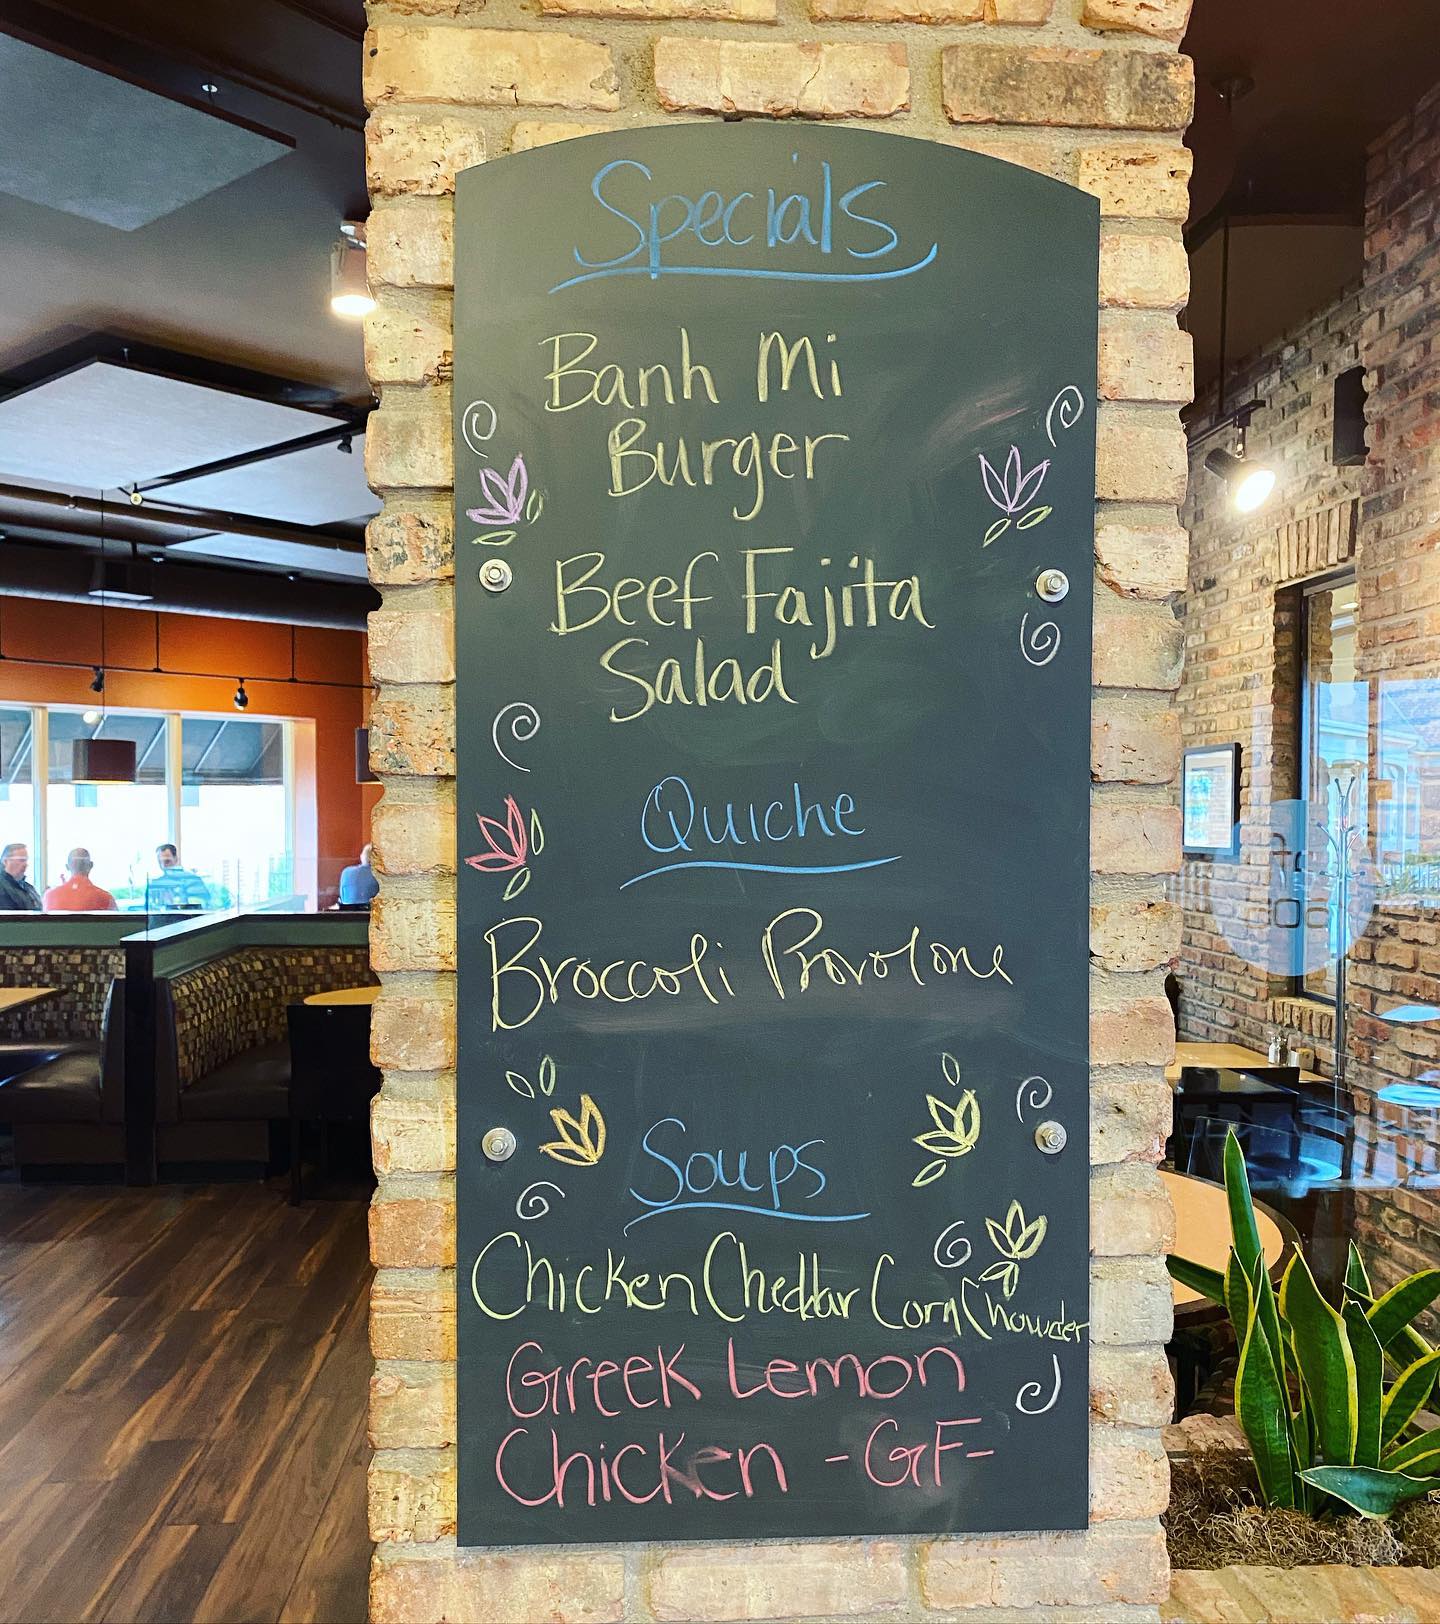 Specials
Banh Mi
Burger
Beef Fajita
Salad
Quiche
Broccoli Provolone
Soups
Chicken Cheddar Corn Chowder
Greek Lemon
Chicken - GF-